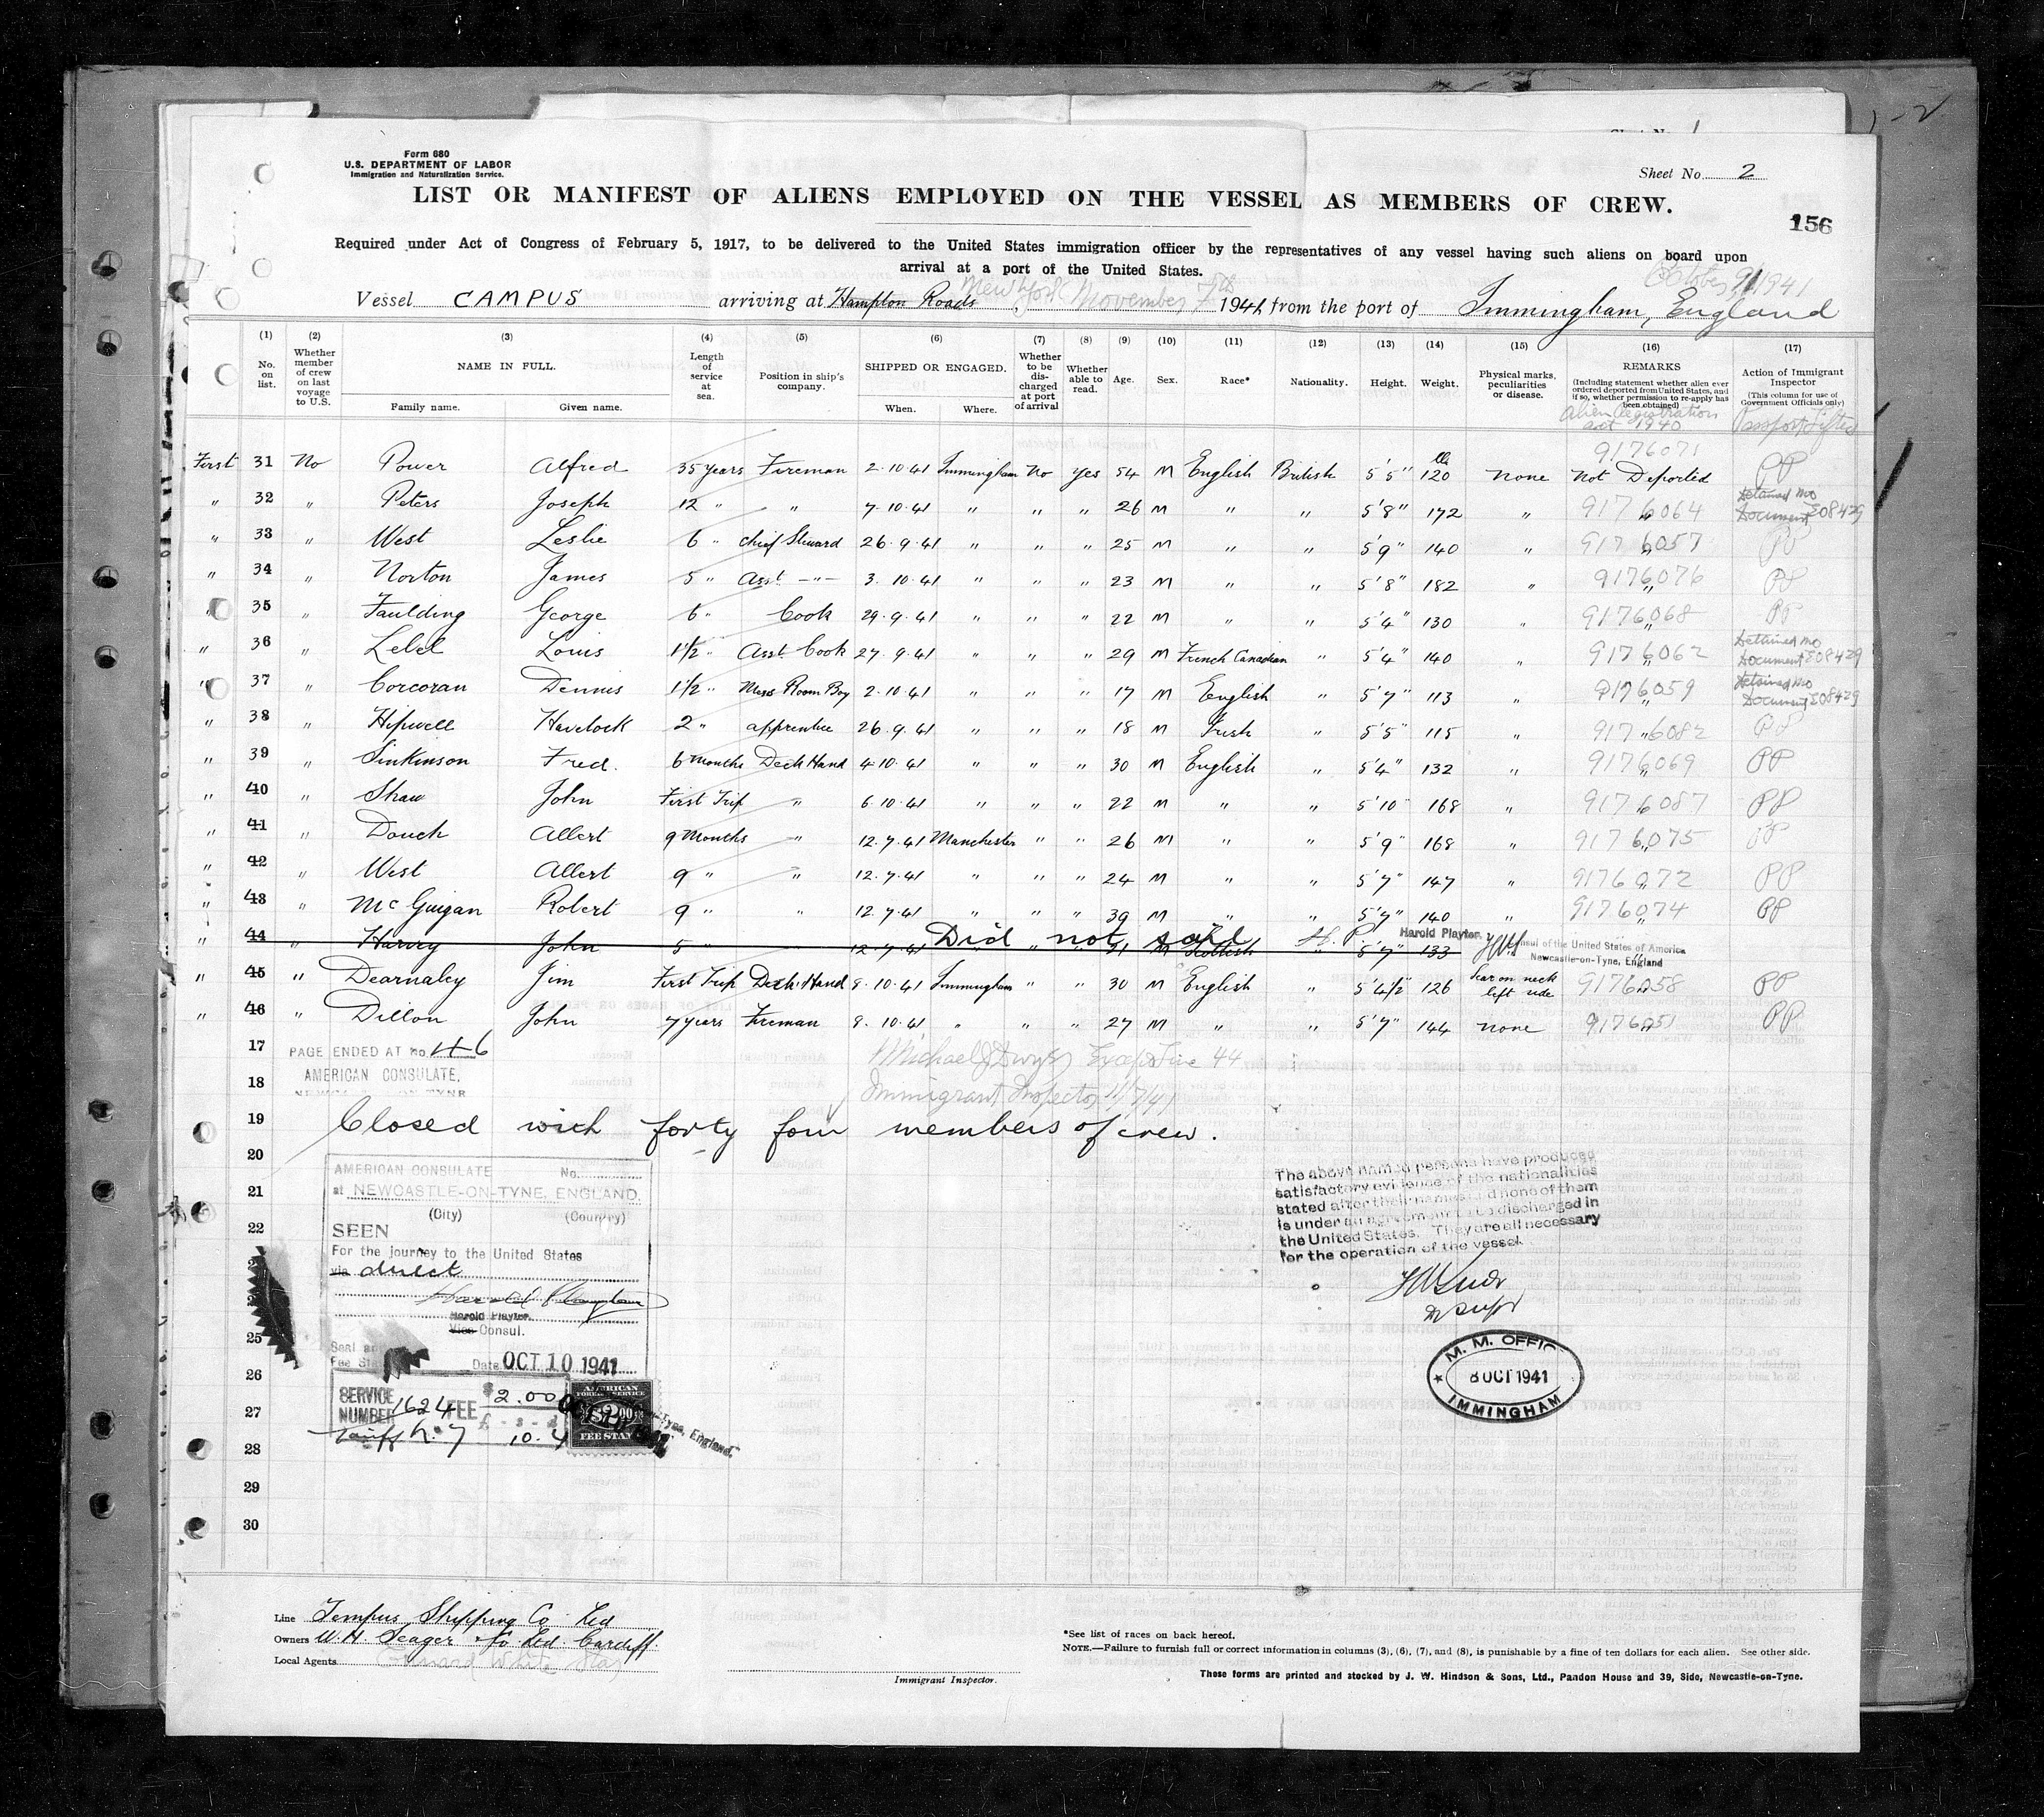 Form 680
U.S. DEPARTMENT OF LABOR
Immigration and Naturalization Service.
Sheet No. 2
LIST OR MANIFEST OF ALIENS EMPLOYED ON THE VESSEL AS MEMBERS OF CREW.
156
Required under Act of Congress of February 5, 1917, to be delivered to the United States immigration officer by the representatives of any vessel having such aliens on board upon
arrival at a port of the United States.
October 9/1941
New York November 7th
Vessel CAMPUS arriving at Hampton Roads 1941 from the port of Immingham, England
(1) (2) (3) (4) (5) (6) (7) (8) (9) (10) (11) (12) (13) (14) (15) (16) (17)
No. on list.
Whether member of crew on last voyage to U.S.
NAME IN FULL.
Family name. Given name.
Length of service at sea.
Position in ship's company.
SHIPPED OR ENGAGED.
When. Where.
Whether to be discharged at port of arrival
Whether able to read.
Age.
Sex.
Race*
Nationality.
Height.
Weight.
Physical marks, peculiarities or disease.
REMARKS
(Including statement whether alien ever ordered deported from United States, and if so, whether permission to re-apply has been obtained)
Alien Registration act 1940
Action of Immigrant Inspector
(This column for use of Government Officials only)
Passport Lifted
9176071
First 31 No Power Alfred 35 years Fireman 2.10.41 Immingham No yes 54 M English British 5'5" 120 lbs none Not Deported PP
" 32 " Peters Joseph 12 " " 7.10.41 " " " 26 M " " 5'8" 172 " 9176064 Detained No Document 208429
" 33 " West Leslie 6 " Chief Steward 26.9.41 " " " 25 M " " 5'9" 140 " 9176057 PP
" 34 " Norton James 5 " Asst. -"- 3.10.41 " " " 23 M " " 5'8" 182 " 9176076 PP
" 35 " Faulding George 6 " Cook 29.9.41 " " " 22 M " " 5'4" 130 " 9176068 PP
" 36 " Lebel Louis 1½ " Asst. Cook 27.9.41 " " " 29 M French Canadian " 5'4" 140 " 9176062 Detained No Document 208429
" 37 " Corcoran Dennis 1½ " Mess Room Boy 2.10.41 " " " 17 M English " 5'7" 113 " 9176059 Detained No Document 208429
" 38 " Hipwell Havelock 2 " apprentice 26.9.41 " " " 18 M Irish " 5'5" 115 " 9176082 PP
" 39 " Sinkinson Fred. 6 Months Deck Hand 4.10.41 " " " 30 M English " 5'4" 132 " 9176069 PP
" 40 " Shaw John First Trip " 6.10.41 " " " 22 M " " 5'10" 168 " 9176087 PP
" 41 " Douch Albert 9 Months " 12.7.41 Manchester " " 26 M " " 5'9" 168 " 9176075 PP
" 42 " West Albert 9 " " 12.7.41 " " " 24 M " " 5'7" 147 " 9176072 PP
" 43 " McGuigan Robert 9 " " 12.7.41 " " " 39 M " " 5'7" 140 " 9176074 PP
" 44 " Harvey John 5 " 12.7.41 Did not sail 21 M Scottish H.P. 5'7" 133
Harold Playter,
Consul of the United States of America
Newcastle-on-Tyne, England
" 45 " Dearnaley Jim First Trip Deck Hand 8.10.41 Immingham " " 30 M English " 5'4½" 126 Scar on neck left side 9176058 PP
" 46 " Dillon John 7 years Fireman 8.10.41 " " " 27 M " " 5'7" 144 none 9176051 PP
17 PAGE ENDED AT No. 46
AMERICAN CONSULATE,
NEWCASTLE-ON-TYNE
Michael J Dwyer Except Line 44
18 Immigrant Inspector 11/7/41
19 Closed with forty four members of crew.
20
21
22
25
26
27
28
29
30
AMERICAN CONSULATE No.
at NEWCASTLE-ON-TYNE, ENGLAND.
(City) (Country)
SEEN
For the journey to the United States
via direct
Harold Playter
Harold Playter.
Vice Consul.
Seal and
Fee Stamp
Date OCT 10 1941
SERVICE NUMBER 1624 FEE $2.00
Tariff No 7 £ - s - d 10.4
AMERICAN
FOREIGN SERVICE
$2.00
FEE STAMP
-Tyne, England.
The above named persons have produced
satisfactory evidence of the nationalities
stated after their names and none of them
is under an agreement to be discharged in
the United States. They are all necessary
for the operation of the vessel.
M. M. OFFICE
8 OCT 1941
IMMINGHAM
Line Tempus Shipping Co Ltd
Owners W.H. Seager & Co Ltd. Cardiff.
Local Agents Cunard White Star
Immigrant Inspector.
*See list of races on back hereof.
NOTE.—Failure to furnish full or correct information in columns (3), (6), (7), and (8), is punishable by a fine of ten dollars for each alien. See other side.
These forms are printed and stocked by J. W. Hindson & Sons, Ltd., Pandon House and 39, Side, Newcastle-on-Tyne.